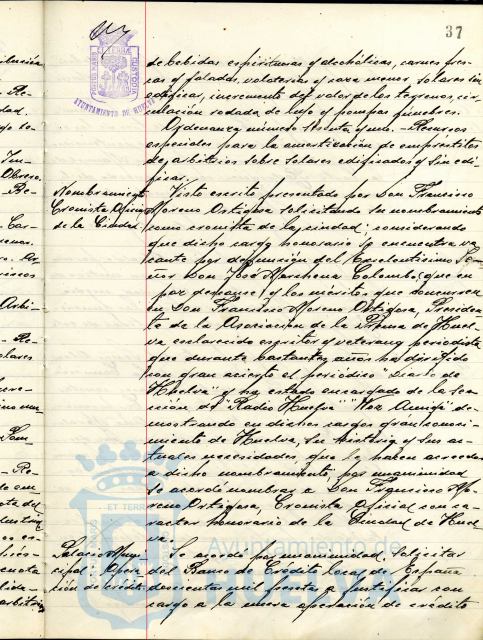 37
PORTUS MARIS ET TERRAE CUSTODIA
AYUNTAMIENTO DE HUELVA
de bebidas espirituosas y alcohólicas, carnes fres-
cas y saladas, volatería y caza menor, solares sin
edificar, incremento del valor de los terrenos, cir-
culación rodada de lujo y pompas fúnebres.
Ordenanza número treinta y uno.- Recursos
especiales para la amortización de empréstitos
de arbitrios sobre solares edificados y sin edi-
ficar.
Nombramiento
Cronista Oficial
de la Ciudad
Visto escrito presentado por Don Francisco
Moreno Ortigosa solicitando su nombramiento
como cronista de la ciudad; considerando
que dicho cargo honorario se encuentra va-
cante por defunción del Excelentísimo Se-
ñor Don José Marchena Colombo, que en
paz descanse, y los méritos que concurren
en Don Francisco Moreno Ortigosa, Presiden-
te de la Asociación de la Prensa de Huel-
va esclarecido escritor y veterano periodista
que durante bastantes años ha dirigido
con gran acierto el periódico "Diario de
Huelva" y ha estado encargado de la Sec-
ción de "Radio Huelva" "Voz Amiga" de-
mostrando en dichos cargos gran conoci-
miento de Huelva, su historia y sus ac-
tuales necesidades que le hacen acreedor
a dicho nombramiento, por unanimidad
se acordó nombrar a Don Francisco Mo-
reno Ortigosa, Cronista Oficial con ca-
racter honorario de la Ciudad de Huel-
va.
Se acordó por unanimidad solicitar
del Banco de Crédito local de España
doscientas mil pesetas a justificar con
cargo a la nueva operación de crédito
Ayuntamiento de
HUELVA